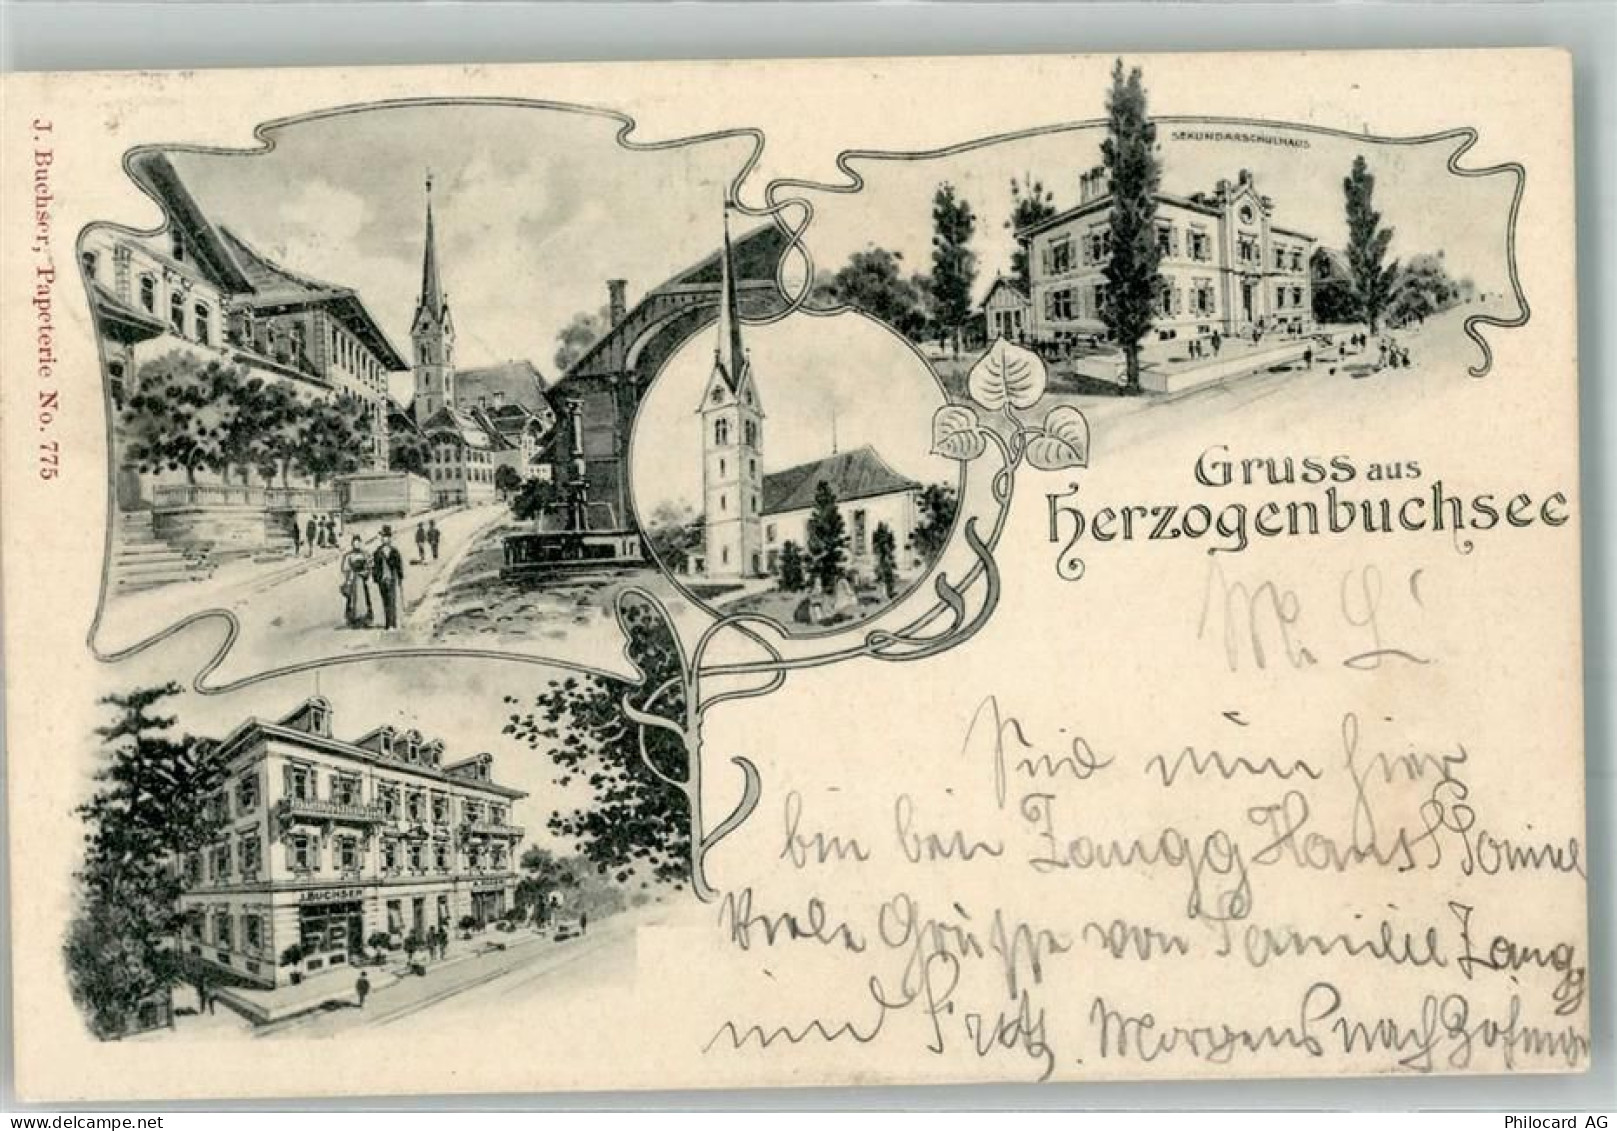 J. Buchser, Papeterie No. 775
SEKUNDARSCHULHAUS
Gruss aus
Herzogenbuchsee
J. BUCHSER
M. L.
Sind nun hier
bin bei Zaugg Hans
Viele Grüsse von Familie Zaugg
und Fritz. Morgens nach
Philocard AG